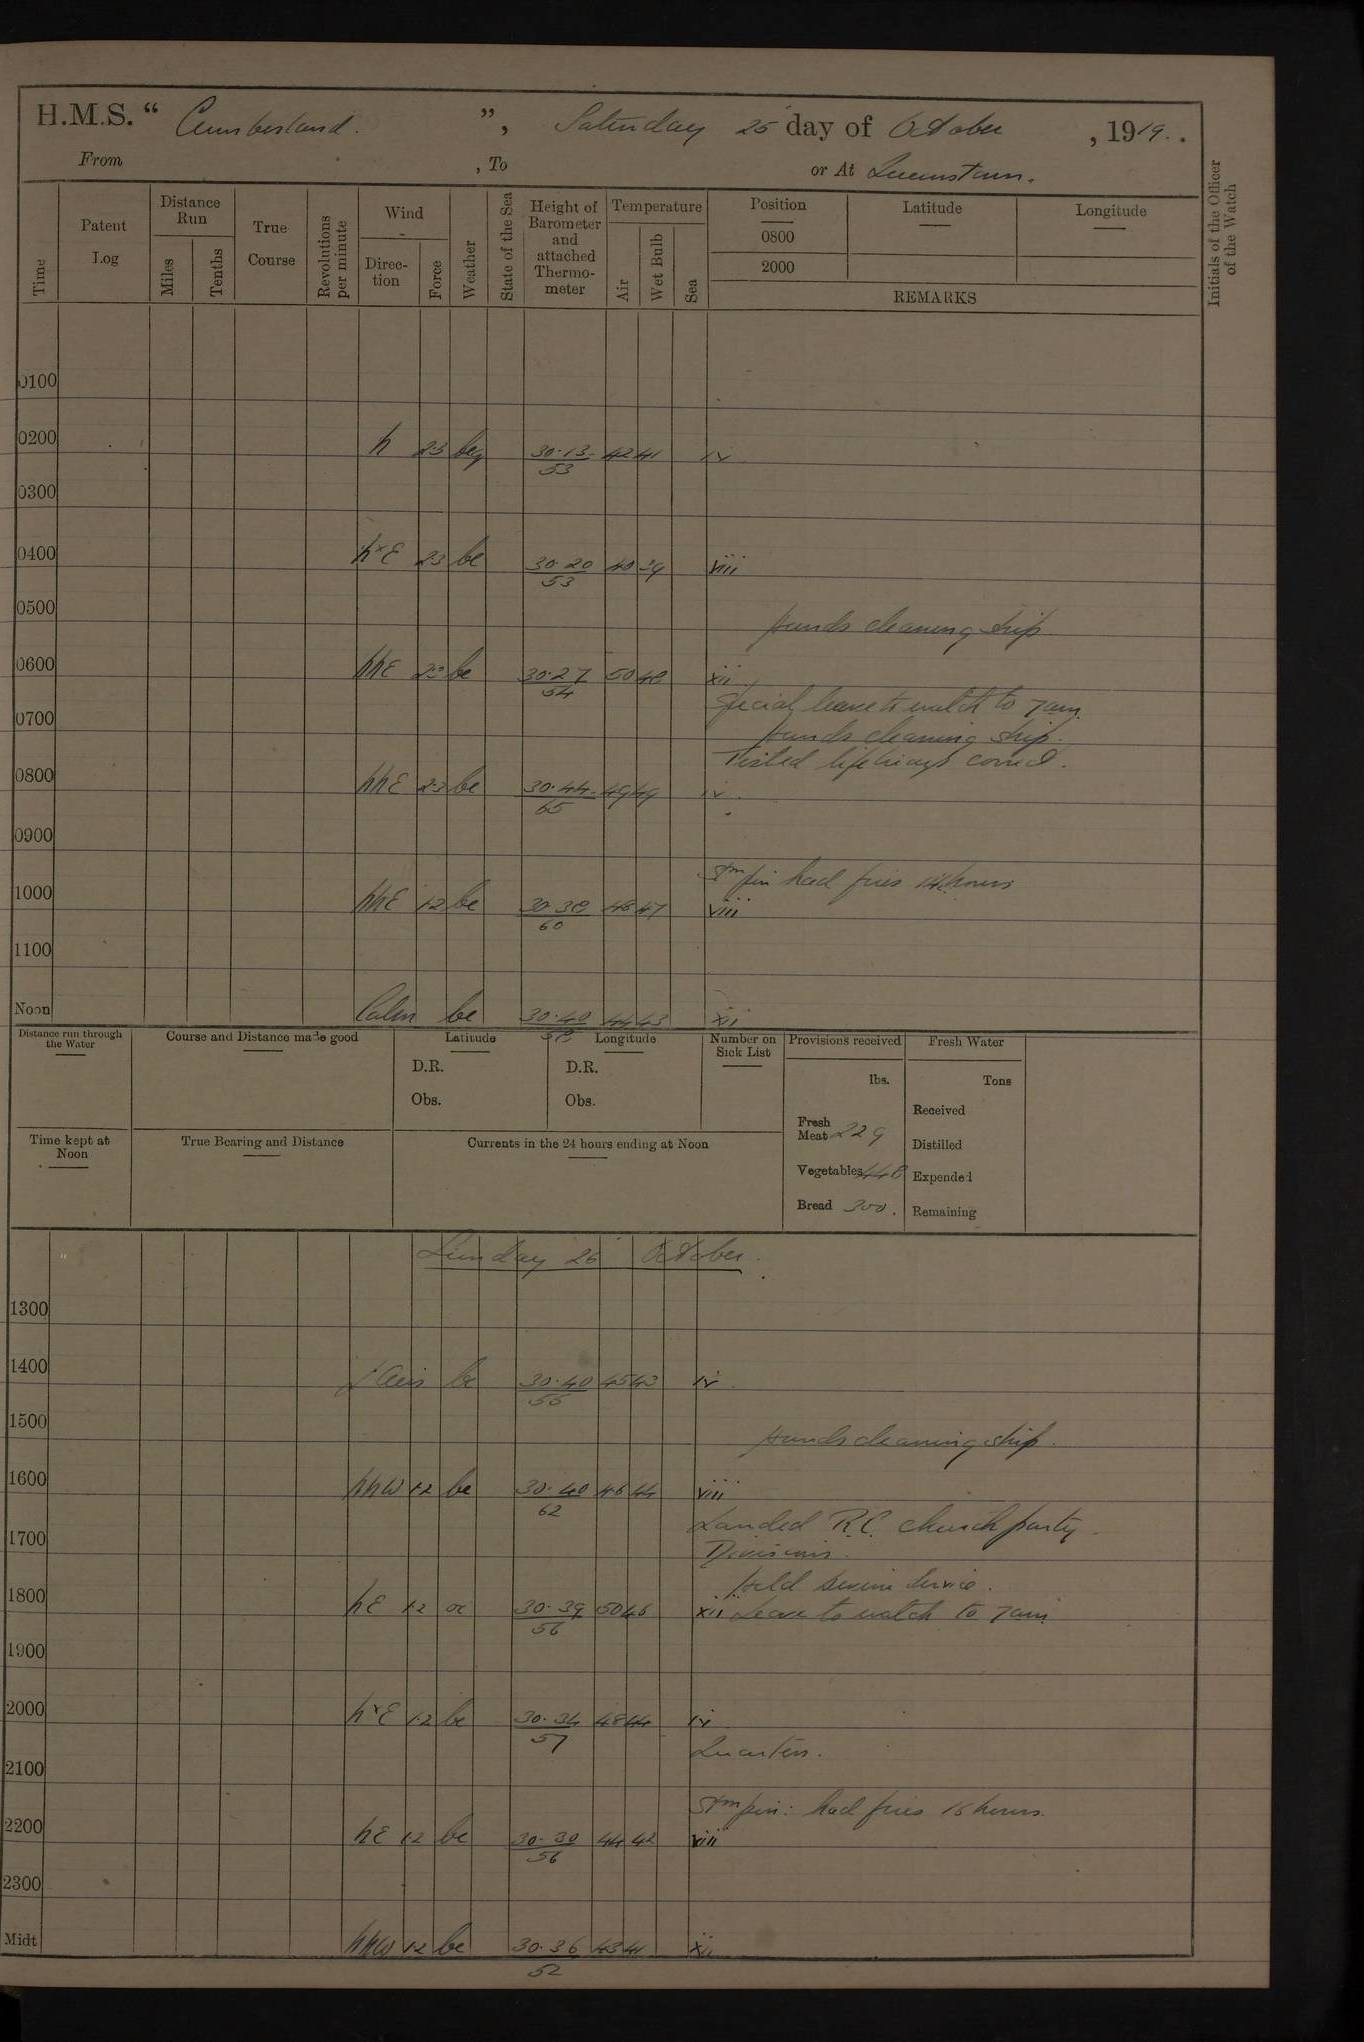 H.M.S. “ Cumberland. ”, Saturday 25 day of October, 1919.
From , To or At Queenstown.
Time
Patent Log
Distance Run
Miles
Tenths
True Course
Revolutions per minute
Wind
Direction
Force
Weather
State of the Sea
Height of Barometer and attached Thermometer
Temperature
Air
Wet Bulb
Sea
Position
0800
2000
Latitude
Longitude
REMARKS
Initials of the Officer of the Watch
0100
0200 N 2.3 bcq 30.13 53 42 41 iv
0300
0400 NxE 2.3 bc 30.20 53 40 39 viii
0500
Hands cleaning ship.
0600 NNE 2.3 bc 30.27 54 50 48 xii
Special leave to watch to 7am.
0700
Hands cleaning ship.
Tested lifebuoys correct.
0800 NNE 2.3 bc 30.44 65 49 49 iv
0900
Stm pin had fires 14 hours
1000 NNE 1.2 bc 30.38 60 48 47 viii
1100
Noon Calm bc 30.40 58 44 43 xii
Distance run through the Water
Course and Distance made good
Latitude
D.R.
Obs.
Longitude
D.R.
Obs.
Number on Sick List
Provisions received
lbs.
Fresh Meat 229
Vegetables 448
Bread 300.
Fresh Water
Tons
Received
Distilled
Expended
Remaining
Time kept at Noon
True Bearing and Distance
Currents in the 24 hours ending at Noon
Sunday 26 October.
1300
1400 bc 30.40 55 45 43 iv
1500
Hands cleaning ship.
1600 NNW 1.2 bc 30.40 62 46 44 viii
Landed R.C. church party
1700
Divisions.
Held Devine Service.
1800 NE 1.2 oc 30.39 56 50 46 xii Leave to watch to 7am
1900
2000 NxE 1.2 bc 30.34 57 48 44 iv
Quarters.
2100
Stm pin: had fires 15 hours.
2200 NE 1.2 bc 30.30 56 44 42 viii
2300
Midt NNW 1.2 bc 30.36 52 43 41 xii